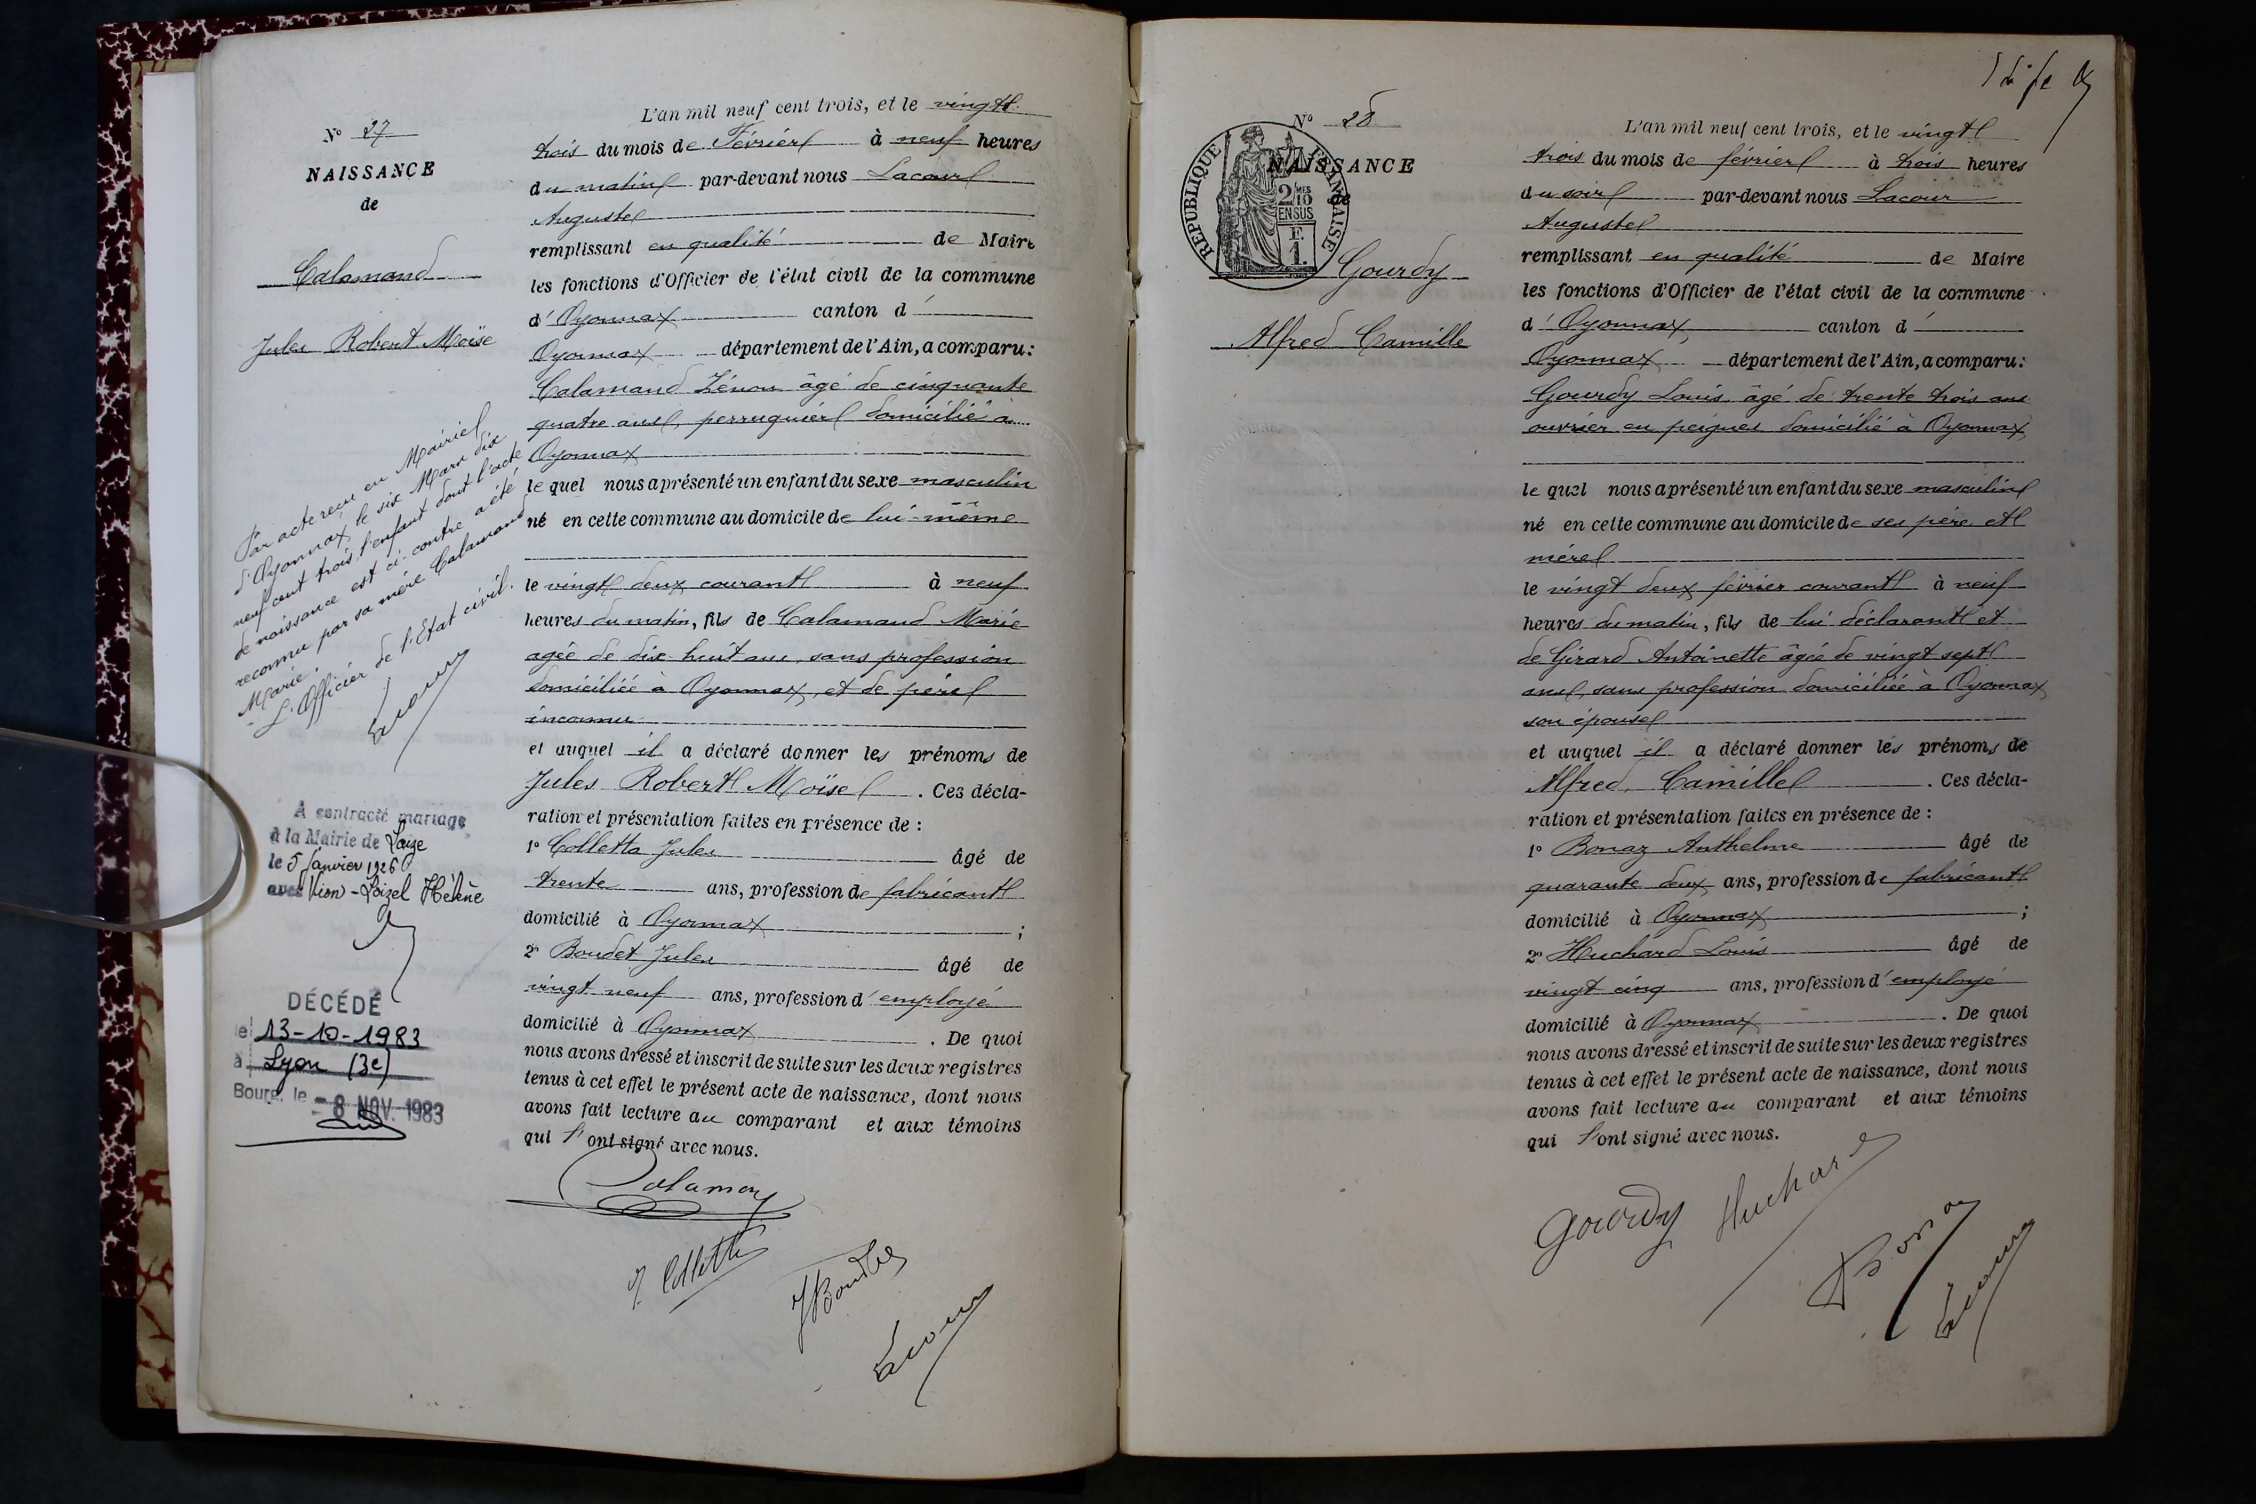 N° 27
NAISSANCE
de
Calamand
Jules Robert Moïse
Par acte reçu en Mairie
d'Oyonnax, le six Mars dix
neuf cent trois, l'enfant dont l'acte
de naissance est ci-contre a été
reconnu par sa mère Calamand
Marie.
L'Officier de l'Etat civil.
Lacour
A contracté mariage
à la Mairie de Laize
le 5 Janvier 1926
avec Vion-Loizel Hélène
DÉCÉDÉ
le 13-10-1983
à Lyon (3e)
Bourg, le - 8 NOV. 1983
L'an mil neuf cent trois, et le vingt
trois du mois de Février à neuf heures
du matin par-devant nous Lacour
Auguste
remplissant en qualité de Maire
les fonctions d'Officier de l'état civil de la commune
d'Oyonnax canton d'
Oyonnax département de l'Ain, a comparu:
Calamand Zénon âgé de cinquante
quatre ans, perruquier domicilié à
Oyonnax
le quel nous a présenté un enfant du sexe masculin
né en cette commune au domicile de lui-même
le vingt deux courant à neuf
heures du matin, fils de Calamand Marie
agée de dix huit ans, sans profession
domiciliée à Oyonnax, et de père
inconnu
et auquel il a déclaré donner les prénoms de
Jules Robert Moïse . Ces décla-
ration et présentation faites en présence de :
1° Colletta Jules âgé de
trente ans, profession de fabricant
domicilié à Oyonnax ;
2° Boudet Jules âgé de
vingt neuf ans, profession d'employé
domicilié à Oyonnax . De quoi
nous avons dressé et inscrit de suite sur les deux registres
tenus à cet effet le présent acte de naissance, dont nous
avons fait lecture au comparant et aux témoins
qui l'ont signé avec nous.
Calamand
J. Colletta
J Boudet
Lacour
N° 28
NAISSANCE
de
REPUBLIQUE FRANÇAISE
2/10 MES
EN SUS
F.
1.
Gourdy
Alfred Camille
L'an mil neuf cent trois, et le vingt
trois du mois de février à trois heures
du soir par-devant nous Lacour
Auguste
remplissant en qualité de Maire
les fonctions d'Officier de l'état civil de la commune
d'Oyonnax, canton d'
Oyonnax département de l'Ain, a comparu:
Gourdy Louis, âgé de trente trois ans
ouvrier en peignes domicilié à Oyonnax
le quel nous a présenté un enfant du sexe masculin
né en cette commune au domicile de ses père et
mère
le vingt deux février courant à neuf
heures du matin, fils de lui déclarant et
de Girard Antoinette âgée de vingt sept
ans, sans profession domiciliée à Oyonnax
son épouse
et auquel il a déclaré donner les prénoms de
Alfred, Camille . Ces décla-
ration et présentation faites en présence de :
1° Bonaz Anthelme âgé de
quarante deux ans, profession de fabricant
domicilié à Oyonnax ;
2° Huchard Louis âgé de
vingt cinq ans, profession d'employé
domicilié à Oyonnax . De quoi
nous avons dressé et inscrit de suite sur les deux registres
tenus à cet effet le présent acte de naissance, dont nous
avons fait lecture au comparant et aux témoins
qui l'ont signé avec nous.
Gourdy
Huchard
Bonaz
Lacour